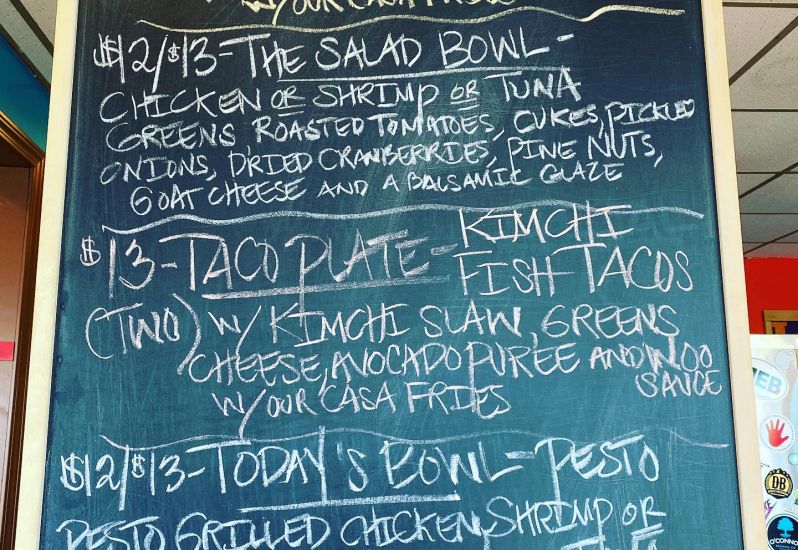 W/OUR CASA FRIES
$12/$13-THE SALAD BOWL-
CHICKEN OR SHRIMP OR TUNA
GREENS, ROASTED TOMATOES, CUKES, PICKLED
ONIONS, DRIED CRANBERRIES, PINE NUTS,
GOAT CHEESE AND A BALSAMIC GLAZE
$13-TACO PLATE-KIMCHI
FISH TACOS
(TWO) W/ KIMCHI SLAW, GREENS
CHEESE, AVOCADO PUREE AND WOO
SAUCE
W/OUR CASA FRIES
$12/$13-TODAY'S BOWL-PESTO
PESTO GRILLED CHICKEN, SHRIMP OR
EB
DB
O'CONNO